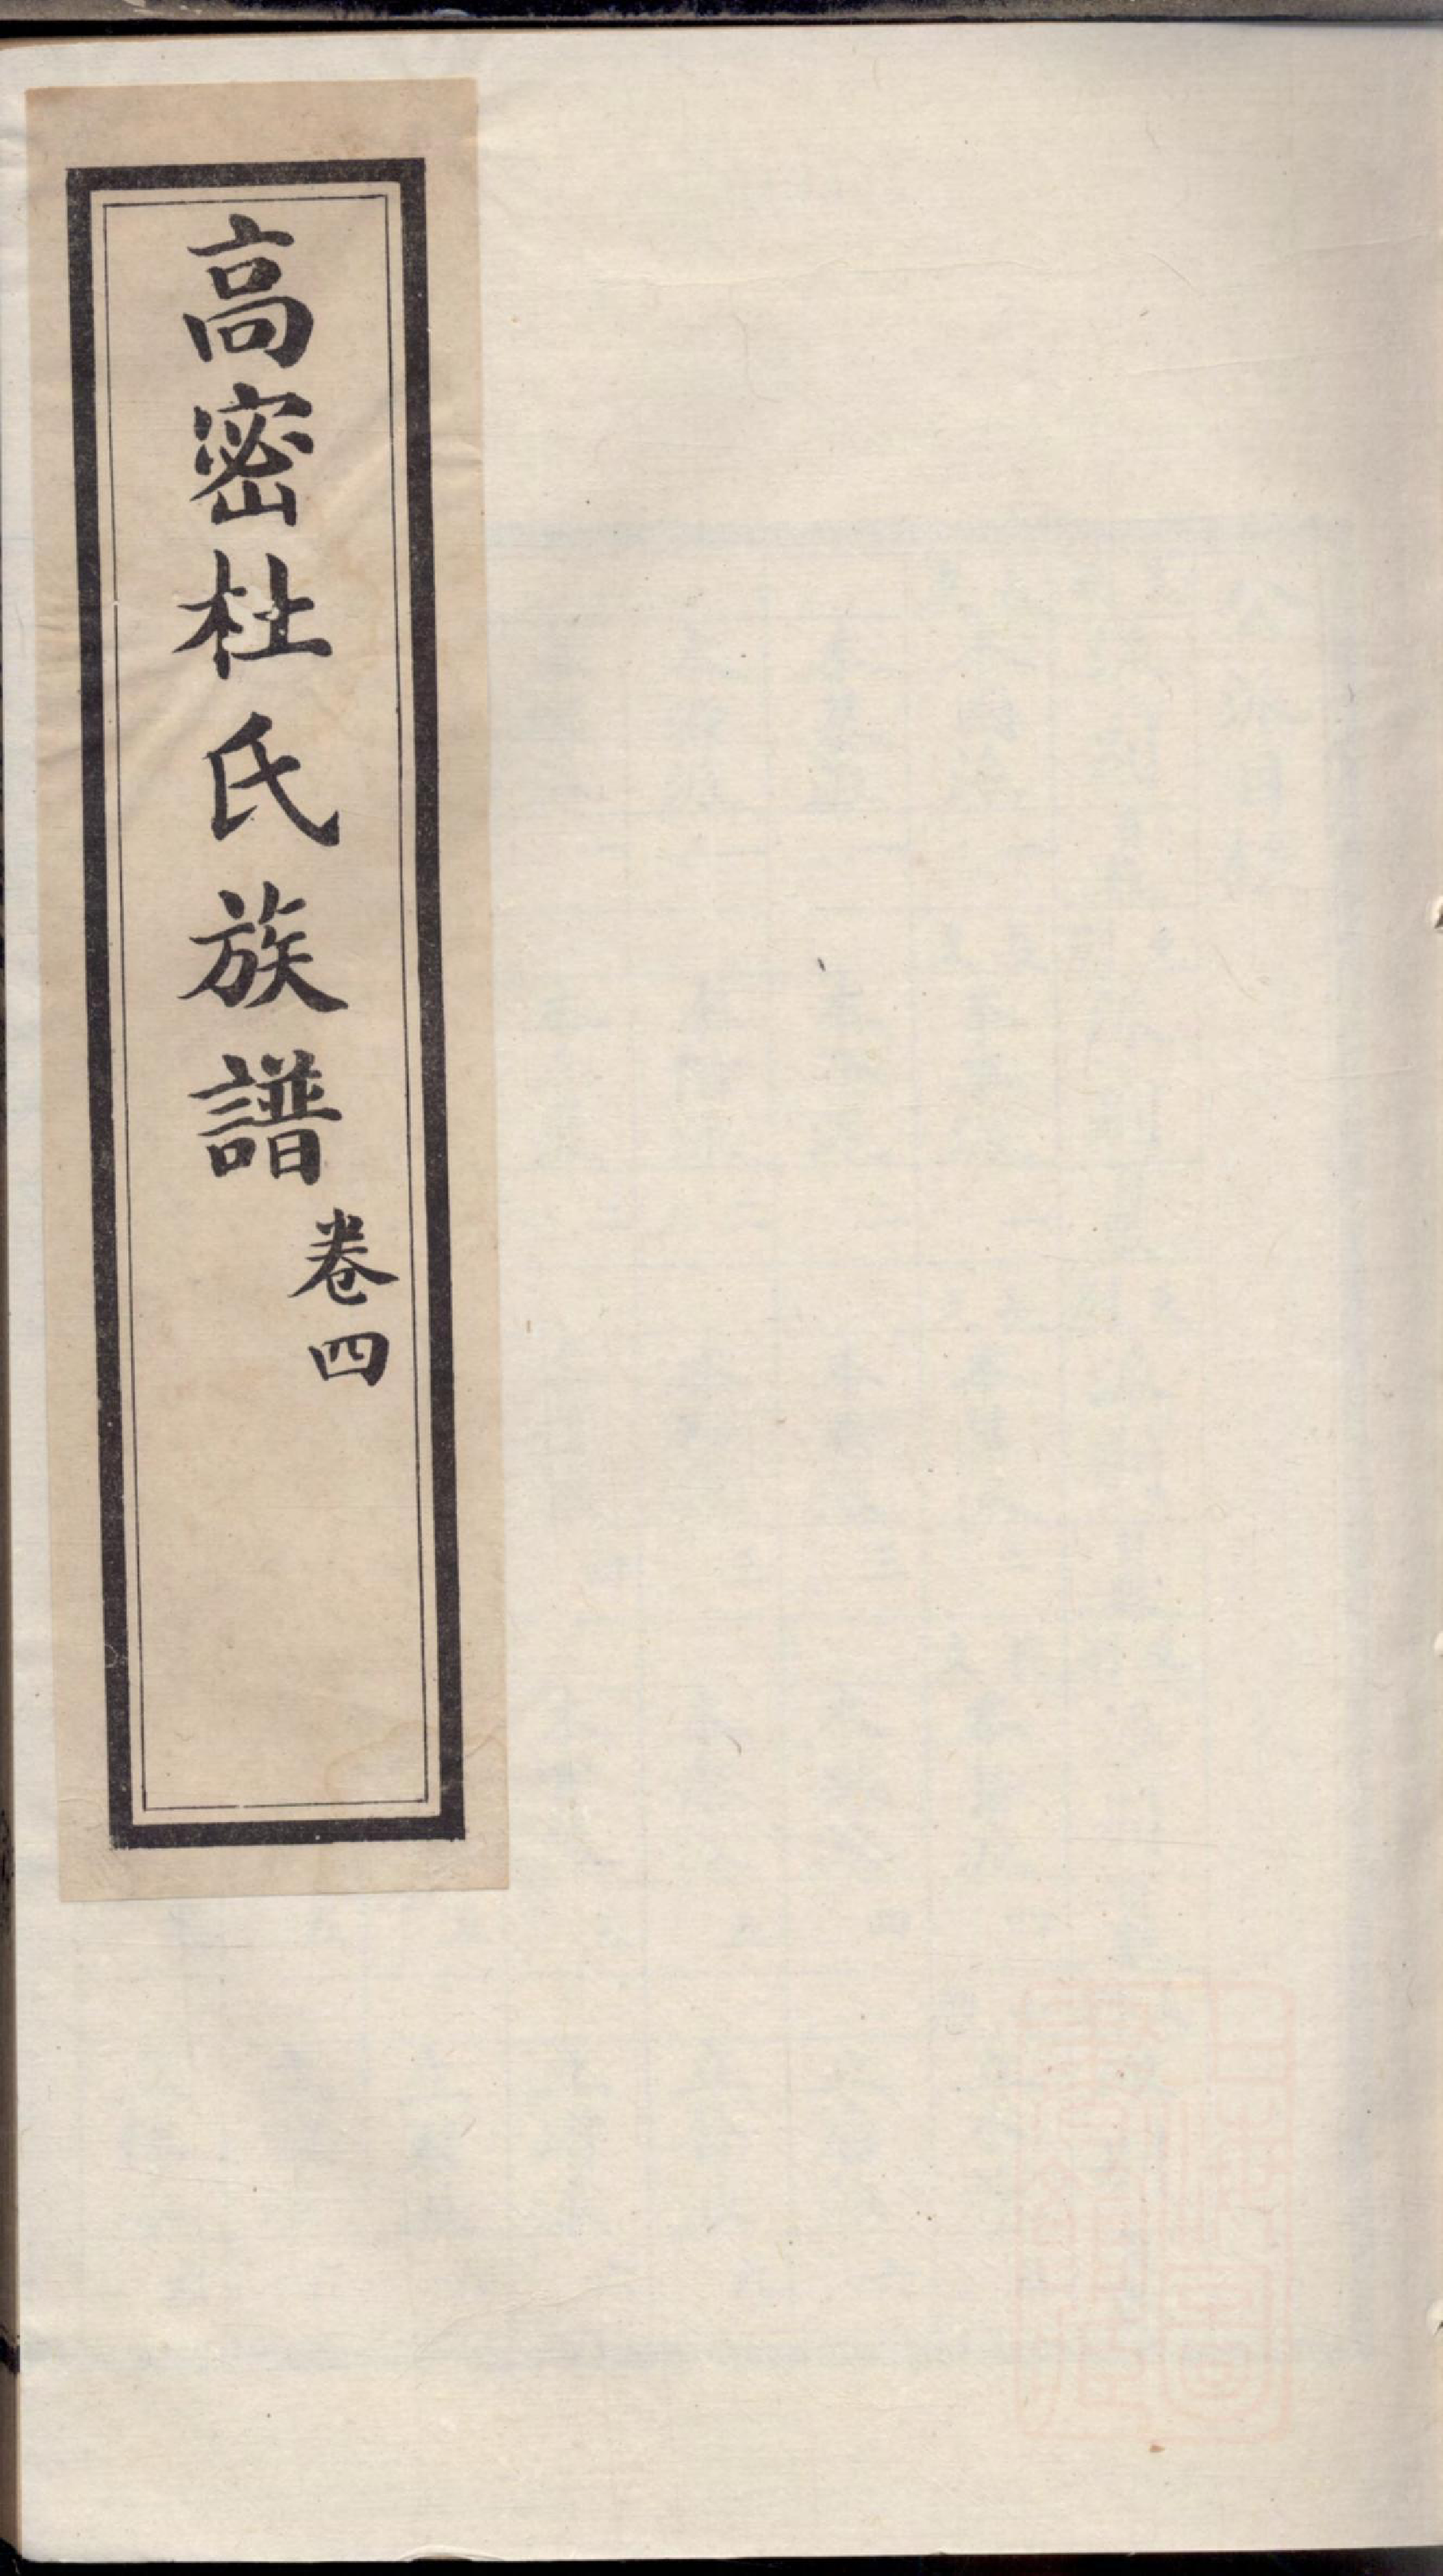 高密杜氏族譜
卷四